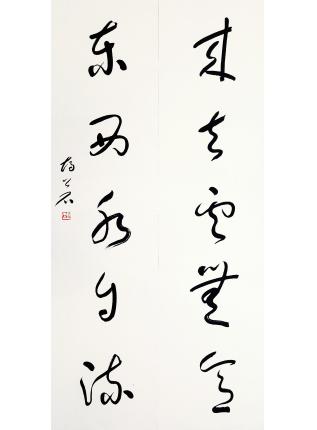 来去雲無意
东西水自流